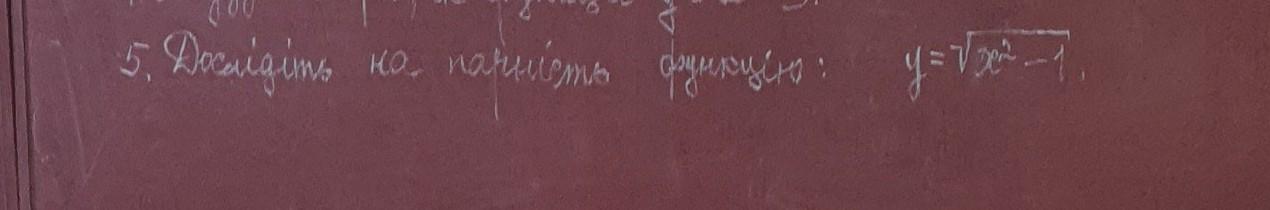 5. Дослідіть на парність функцію: y = √x² - 1.